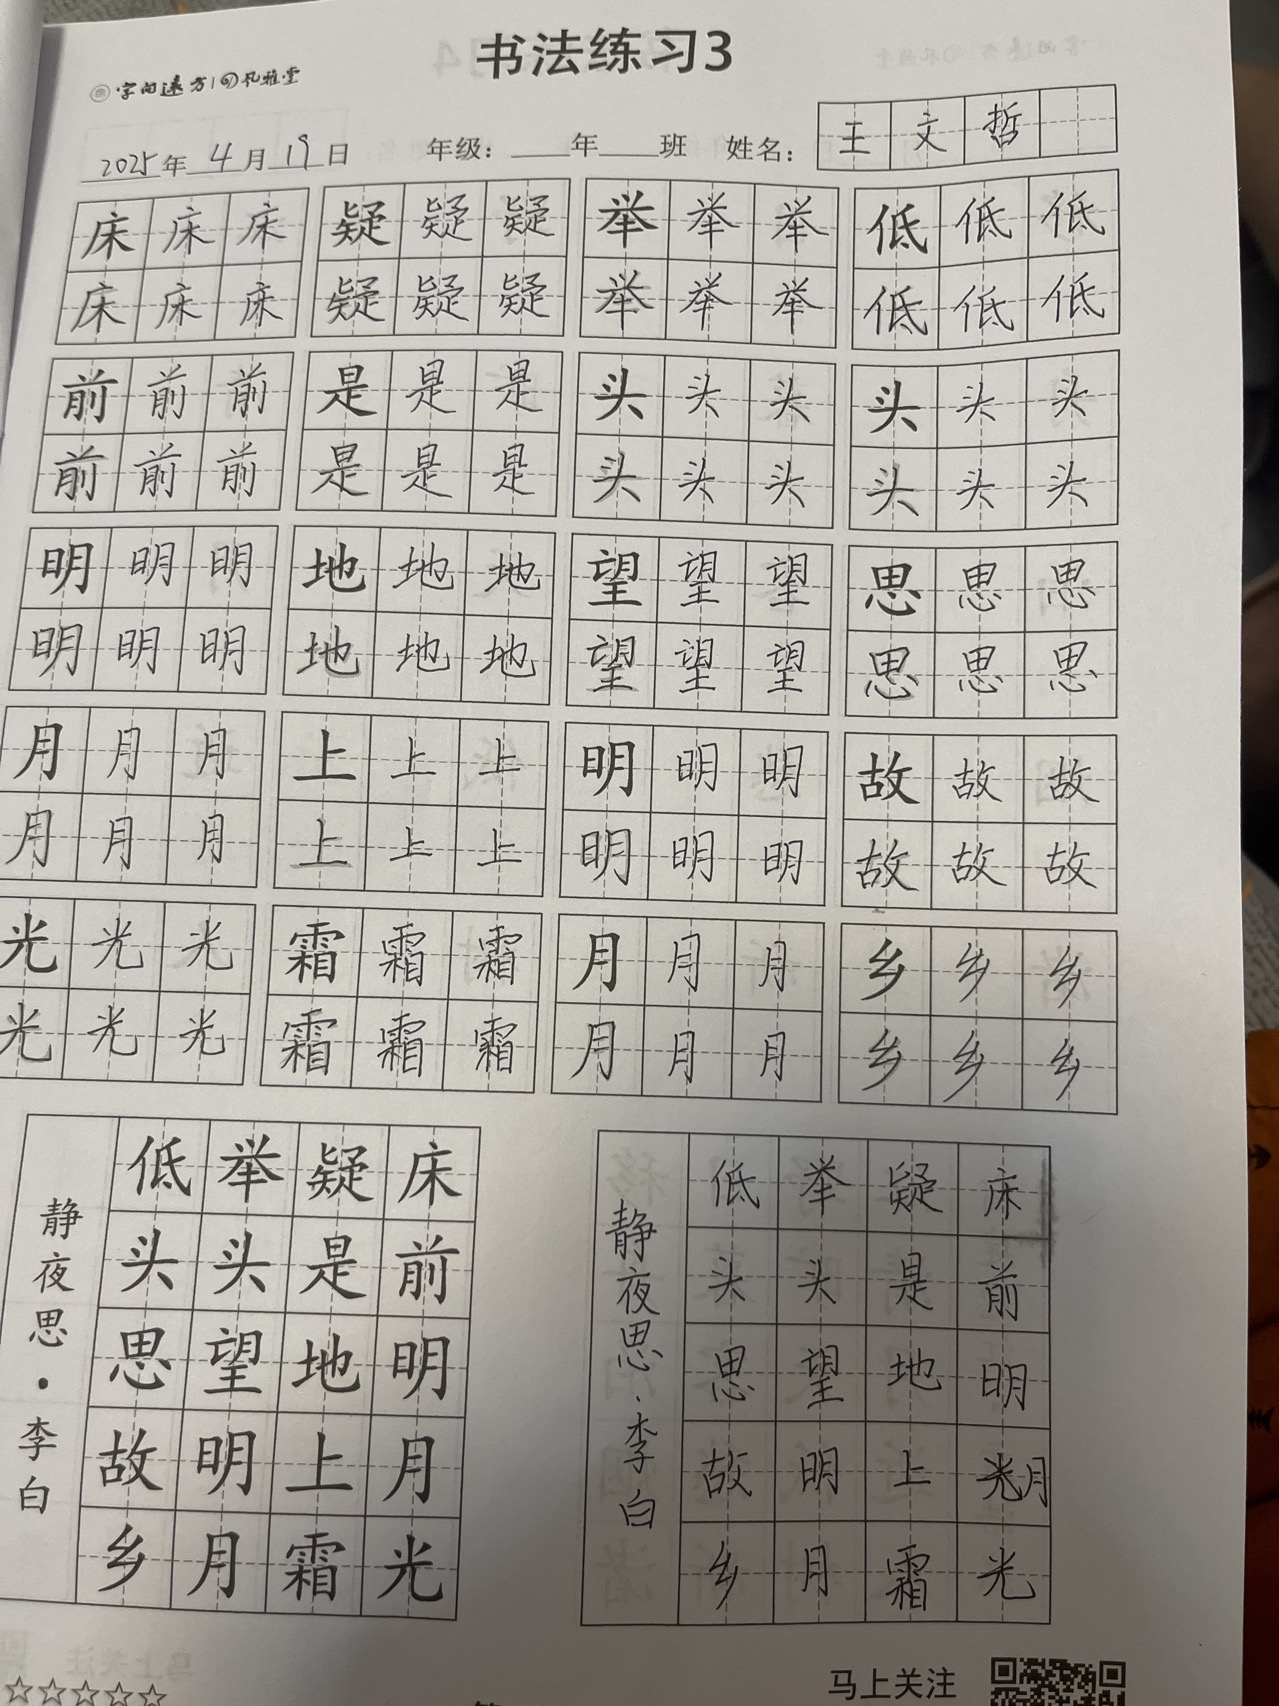 书法练习3
字向远方 孔雅堂
2025年 4月 19日 年级：____年____班 姓名：王文哲
床床床 疑疑疑 举举举 低低低
床床床 疑疑疑 举举举 低低低
前前前 是是是 头头头 头头头
前前前 是是是 头头头 头头头
明明明 地地地 望望望 思思思
明明明 地地地 望望望 思思思
月月月 上上上 明明明 故故故
月月月 上上上 明明明 故故故
光光光 霜霜霜 月月月 乡乡乡
光光光 霜霜霜 月月月 乡乡乡
床前明月光
疑是地上霜
举头望明月
低头思故乡
静夜思·李白
床前明光月光
疑是地上霜
举头望明月
低头思故乡
静夜思·李白
马上关注